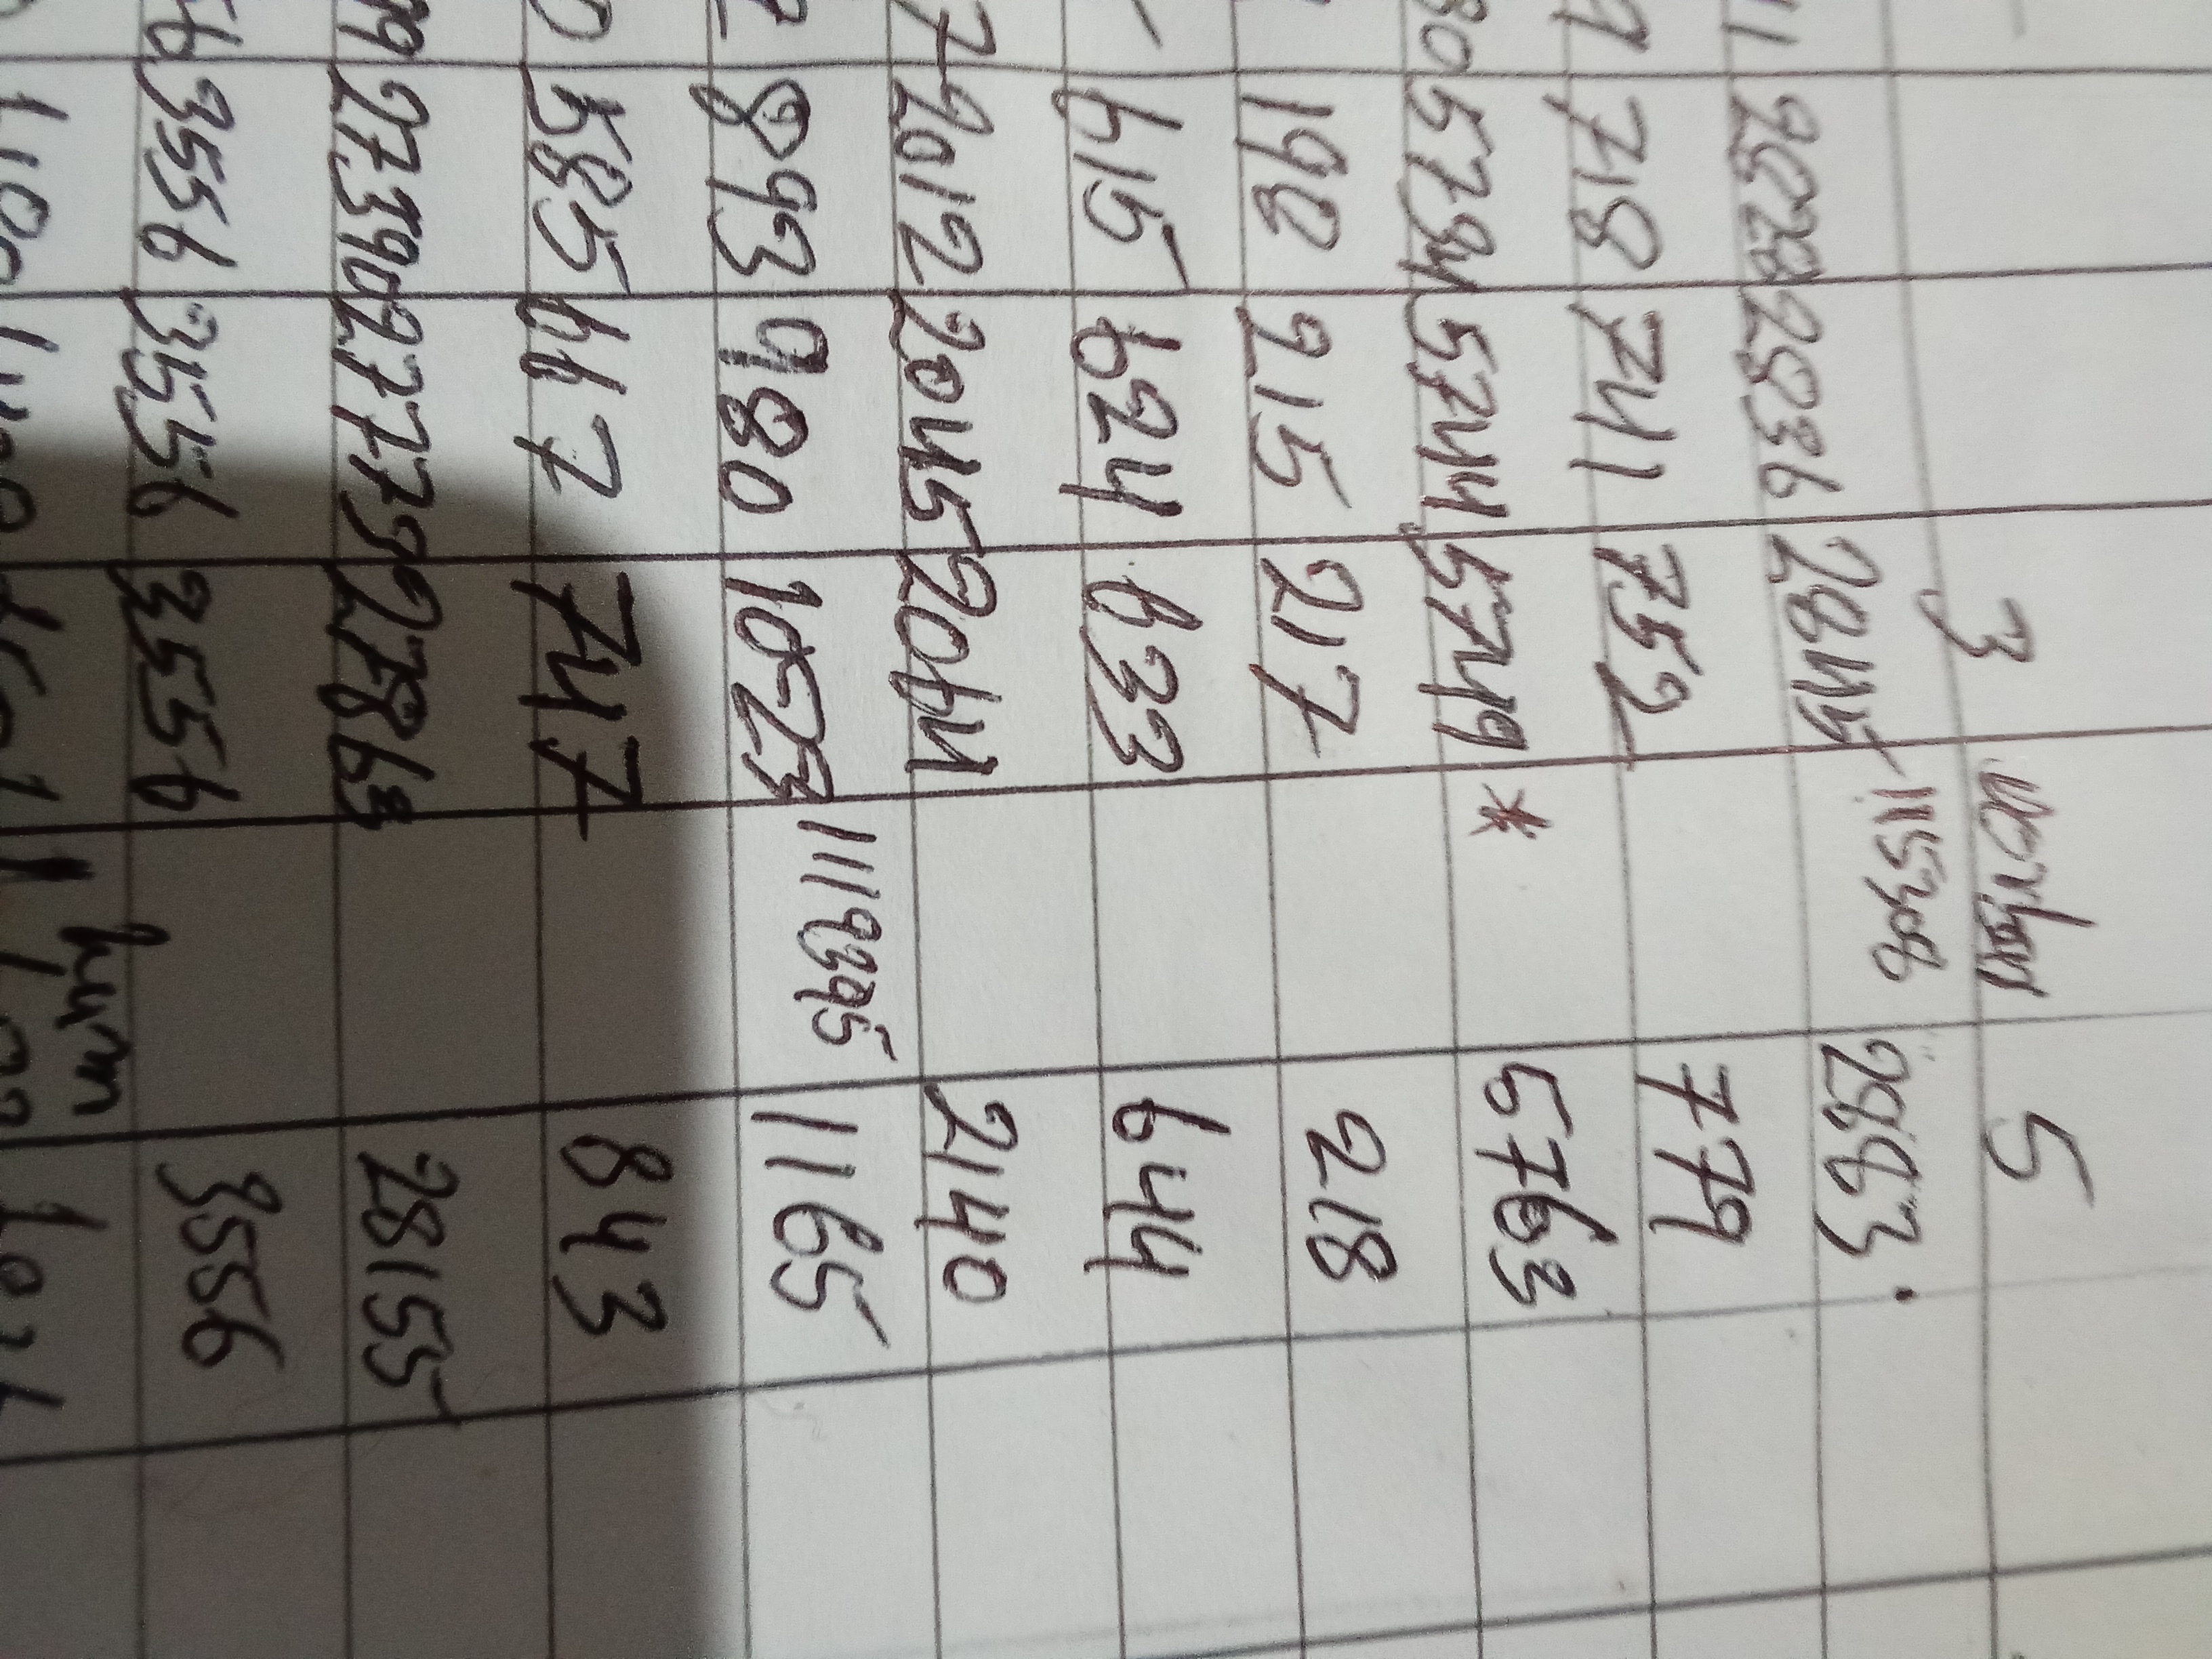 3 5
2828 2836 2845 115308
9 718 741 752 779
80 5734 5744 5749 * 5763
198 215 217 218
615 624 633 644
7 2012 2045 2044 2140
893 980 1023 1119395 1165
585 667 747 843
27390 27779 27863 28155
56 3556 3556 3556 3556